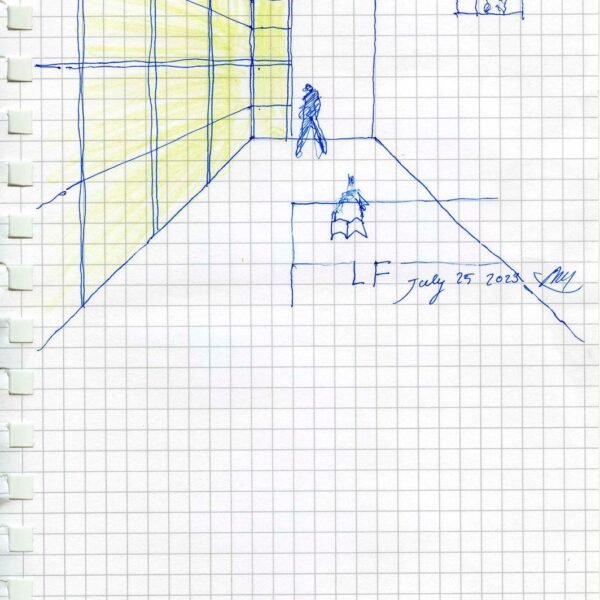 LF July 25 2023